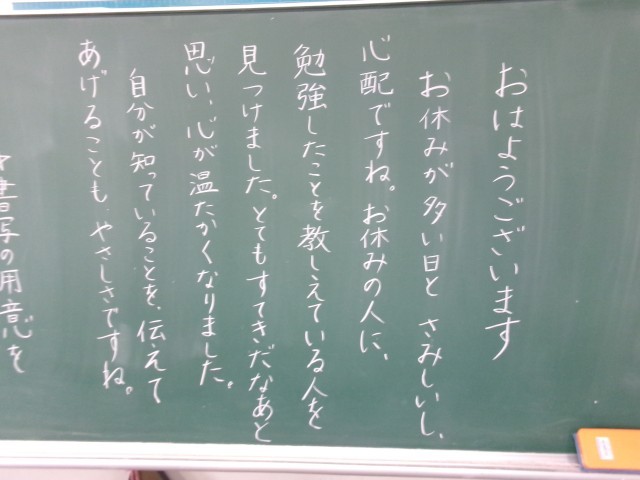 おはようございます
お休みが多い日と さみしいし、
心配ですね。お休みの人に、
勉強したことを教しえている人を
見つけました。とてもすてきだなあと
思い、心が温たかくなりました。
自分が知っていることを、伝えて
あげることも、やさしさですね。
書写の用意を